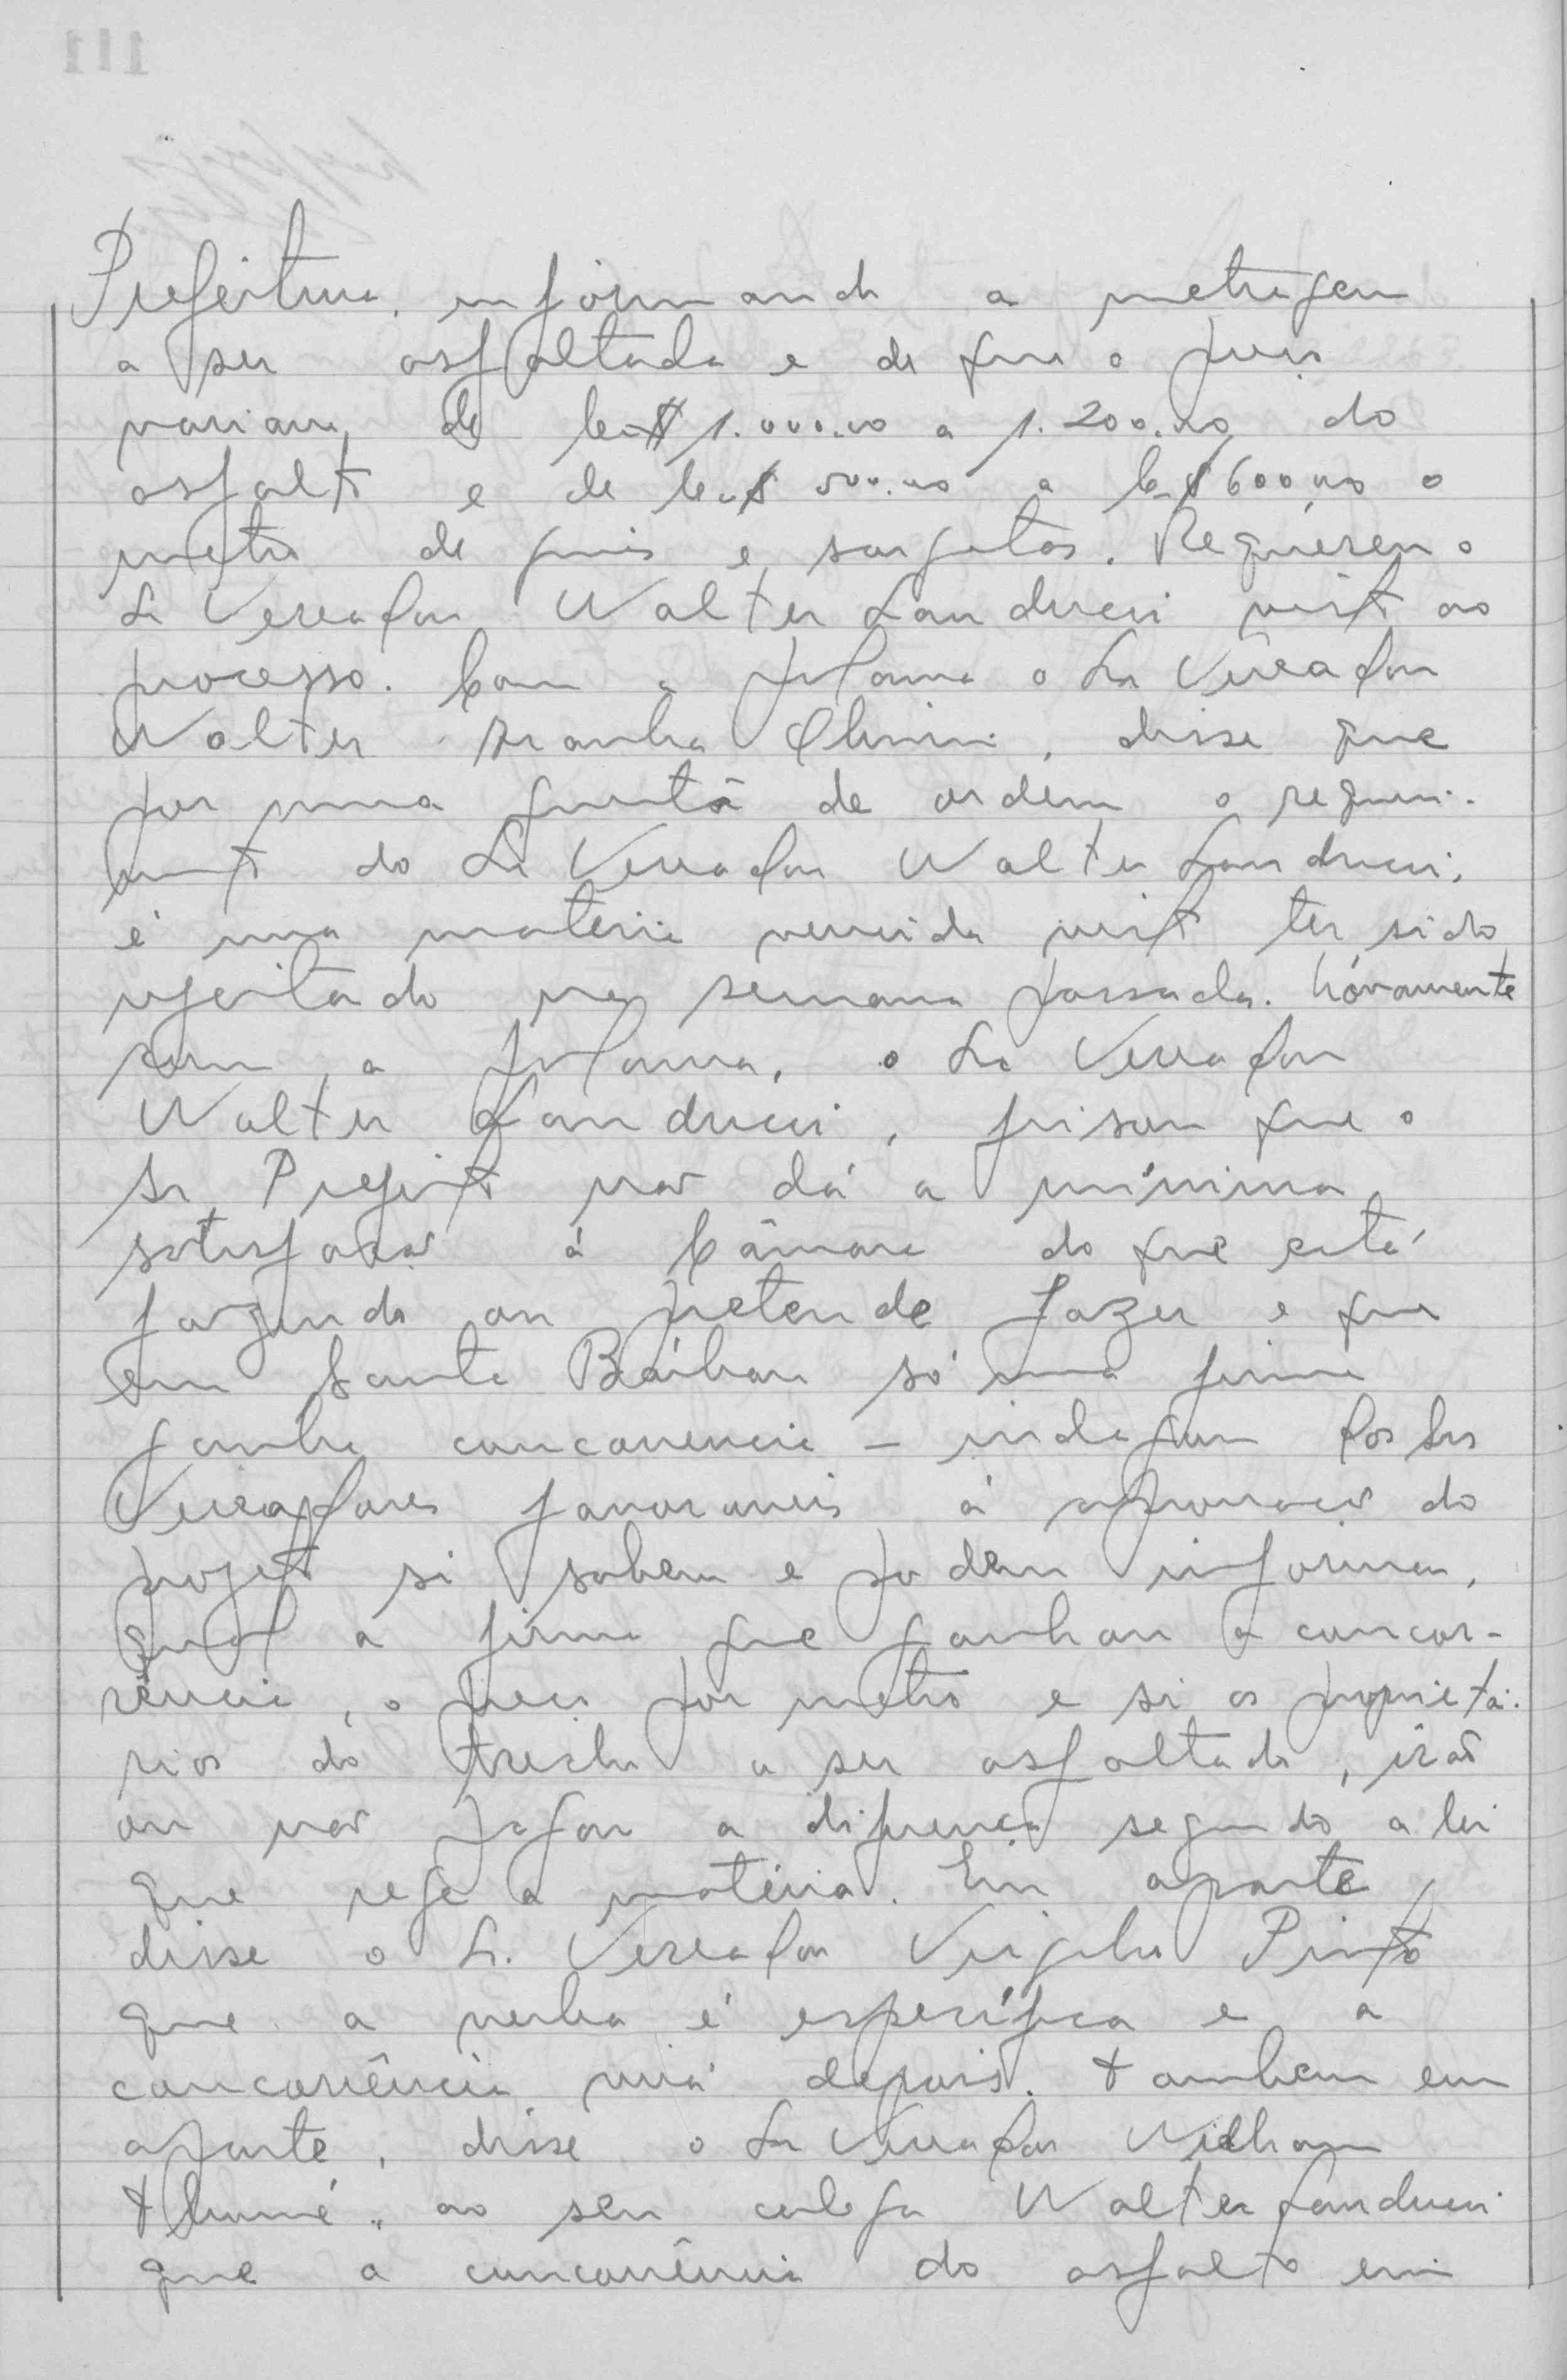 Prefeitura, informando a metragem
a ser asfaltada e de que o preço
variava de Cr$ 1.000,00 a 1.200,00 do
asfalto e de Cr$ 500,00 a Cr$ 600,00 o
metro de guias e sargetas. Requereu o
Sr Vereador Walter Landucci vista ao
processo. Com a palavra o Snr Vereador
Walter Aranha disse que
por uma questão de ordem o requeri-
mento do Sr Vereador Walter Landucci,
é uma materia vencida visto ter sido
rejeitado na semana passada. Nóvamente
com a palavra, o Sr Vereador
Walter Landucci, frisou que o
Sr Prefeito não dá a mínima
satisfação á Câmara do que está
fazendo ou pretende fazer e que
em Santa Bárbara só uma firma
ganha concorrencia – indagou dos Srs
Vereadores favoraveis á aprovação do
projeto si sabem e podem informar,
qual a firma que ganhou a concor-
rência, o preço por metro e si os proprietá-
rios do trecho a ser asfaltado, irão
ou não pagar a diferença segundo a lei
que rege a matéria. Em aparte
disse o Sr. Vereador Virgilio Pinto
que a verba é específica e a
concorrência virá depois. Tambem em
aparte, disse o Snr Vereador William
ao seu colega Walter Landucci
que a concorrência do asfalto em